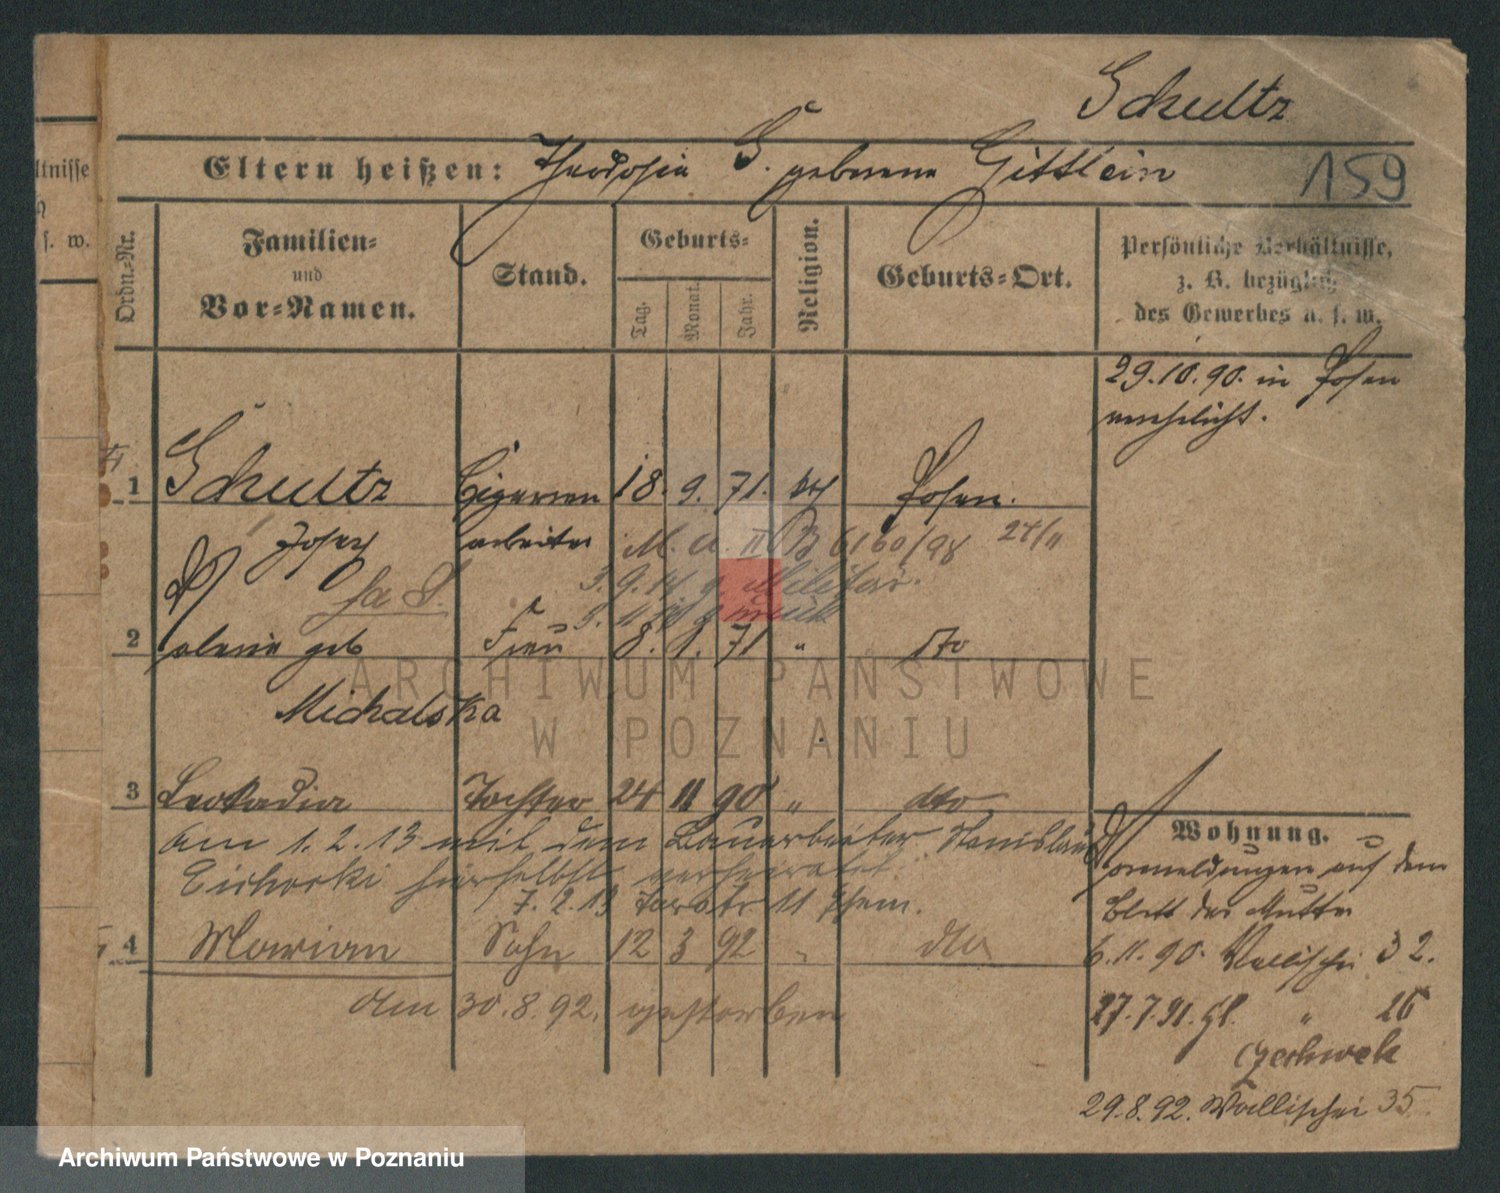 Schultz
Eltern heißen: Theodosia S. geborene Gittlein
159
ltnisse
s. w.
Ordn.-Nr.
Familien-
und
Vor-Namen.
Stand.
Geburts-
Tag.
Monat.
Jahr.
Religion.
Geburts-Ort.
Persönliche Verhältnisse,
z. B. bezüglich
des Gewerbes u. s. w.
29.10.90. in Posen
verehelicht.
1 Schultz Cigarren 18. 9. 71. kth Posen.
Josef arbeiter M. a. II B 6160/98 27/11
3.9.14 z. Militär.
2 geb Frau 8. 1. 71 " dto
Michalska
3 Leokadia Tochter 24 11 90 " dto
am 1.2.13 mit dem Bauarbeiter Stanislaus
Cichocki hierselbst verheiratet.
7.2.13 11
4 Marian Sohn 12 3 92 " dto
am 30.8.92. gestorben
Wohnung.
Vormeldungen auf dem
Blatt der Mutter
6.11.90. Wallischei 32.
27.7.91. " 26
29.8.92. Wallischei 35
ARCHIWUM PAŃSTWOWE
W POZNANIU
Archiwum Państwowe w Poznaniu